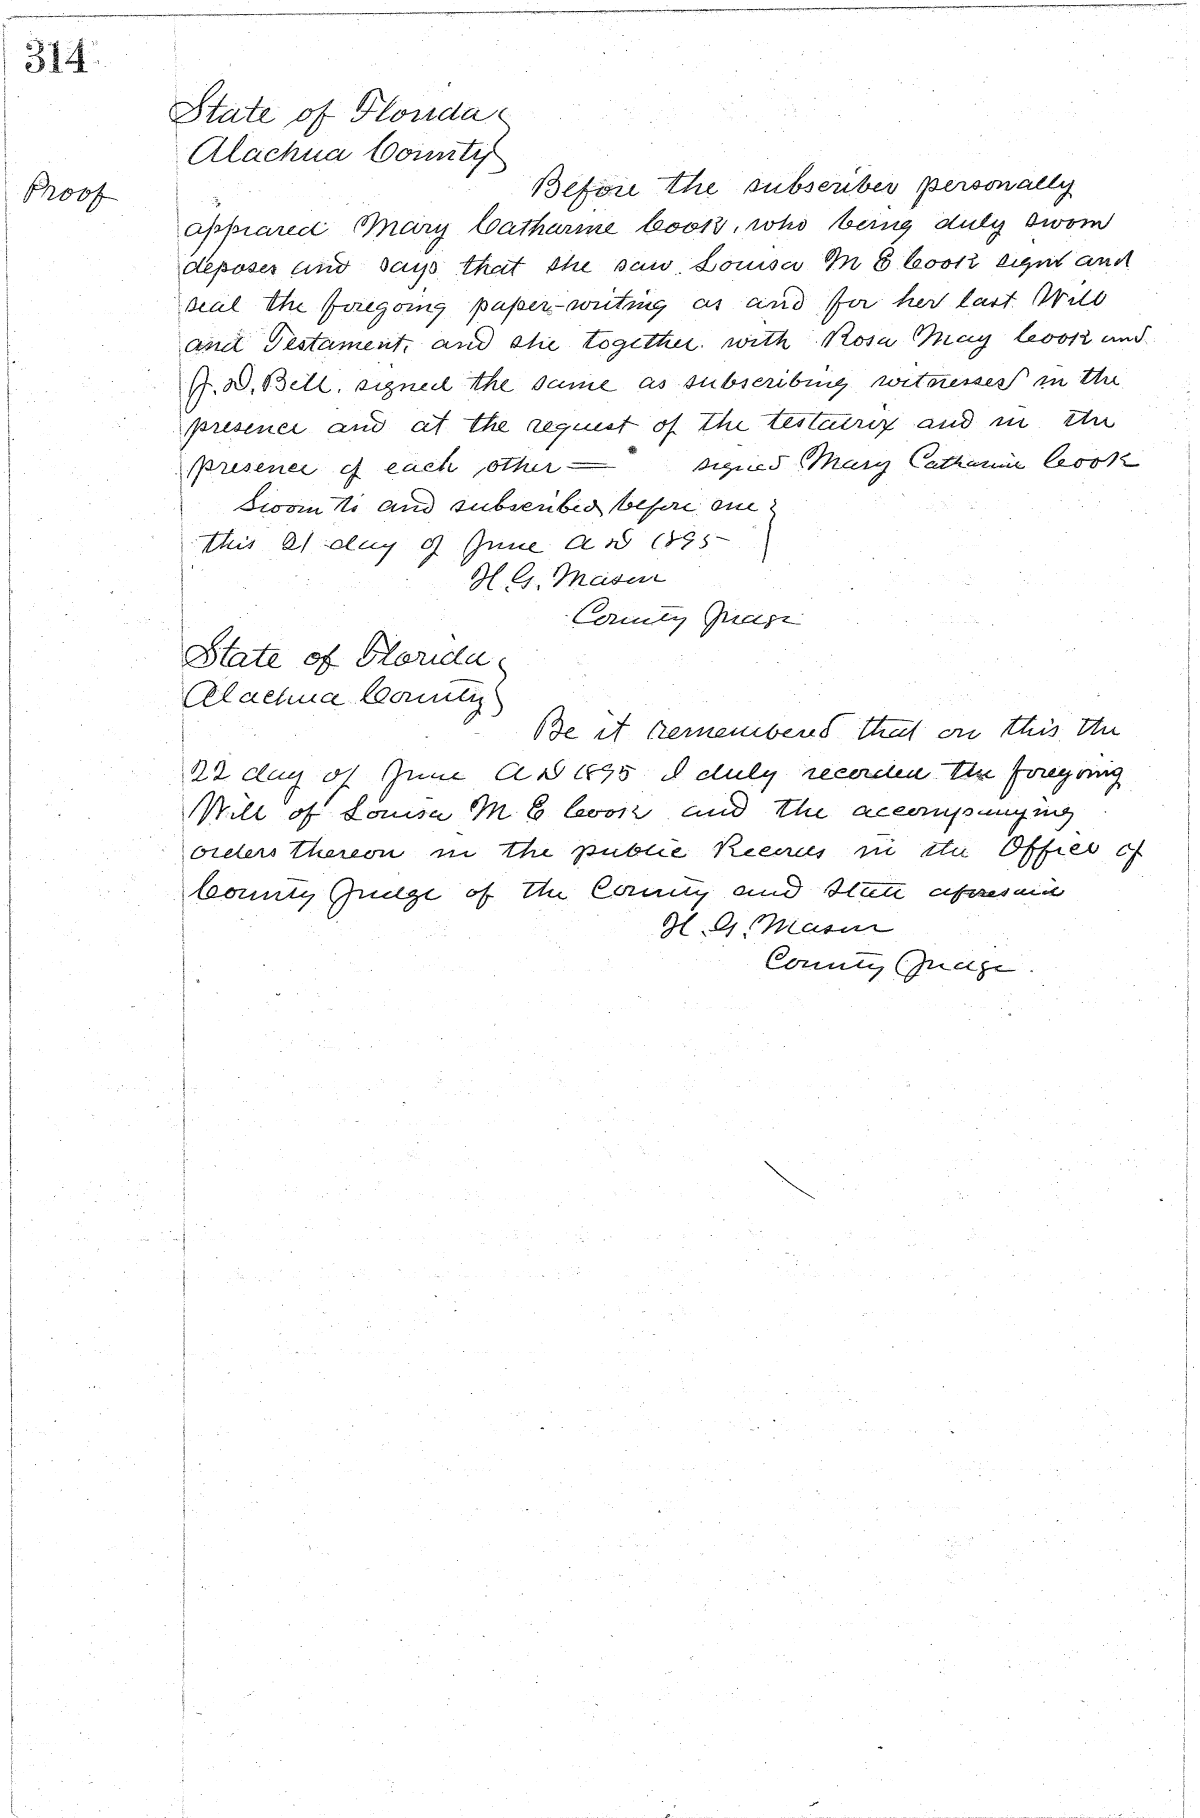 314
State of Florida
Alachua County
Proof
Before the subscriber personally
appeared Mary Catharine Cook, who being duly sworn
deposes and says that she saw Louisa M E Cook sign and
seal the foregoing paper-writing as and for her last Will
and Testament, and she together with Rosa May Cook and
J. D. Bell, signed the same as subscribing witnesses in the
presence and at the request of the testatrix and in the
presence of each other = signed Mary Catharine Cook
Sworn to and subscribed before me
this 21 day of June A D 1895
H. G. Mason
County Judge
State of Florida
Alachua County
Be it remembered that on this the
22 day of June A D 1895 I duly recorded the foregoing
Will of Louisa M E Cook and the accompanying
orders thereon in the public Records in the Office of
County Judge of the County and State aforesaid
H. G. Mason
County Judge.